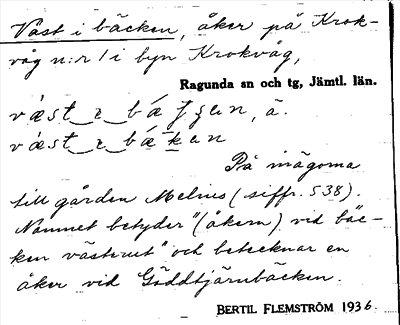 Väst i bäcken, åker på Krok-
våg n:r 1 i byn Krokvåg,
Ragunda sn och tg, Jämtl. län.
På inägorna
till gården Melins (siffr. 538).
Namnet betyder "(åkern) vid bäc-
ken västerut" och betecknar en
åker vid Gäddtjärnbäcken.
BERTIL FLEMSTRÖM 1936.